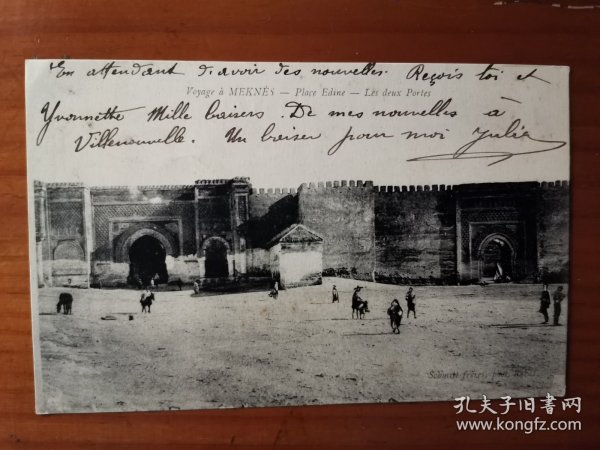 En attendant d'avoir des nouvelles. Reçois toi et
Voyage à MEKNÈS — Place Edine — Les deux Portes
Yvonnette Mille baisers. De mes nouvelles à
Villenouvelle. Un baiser pour moi Julia
Schmitt frères, phot.
孔夫子旧书网
www.kongfz.com